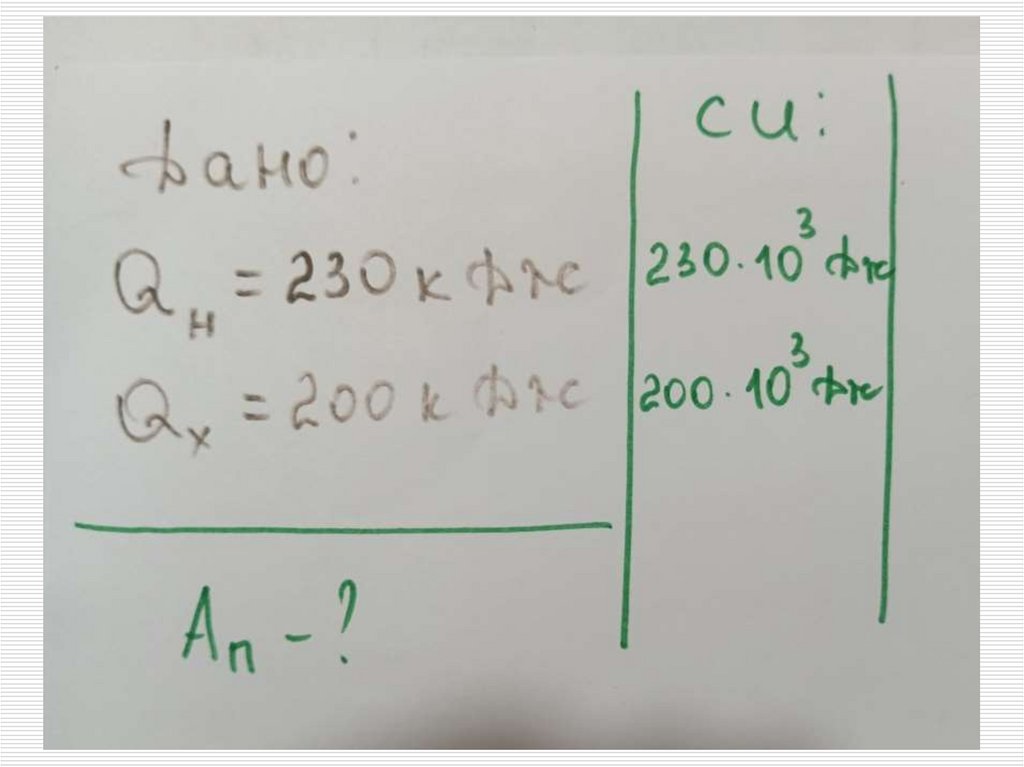 Дано:
Qн = 230 кДж
Qх = 200 кДж
Aп - ?
СИ:
230·10³ Дж
200·10³ Дж